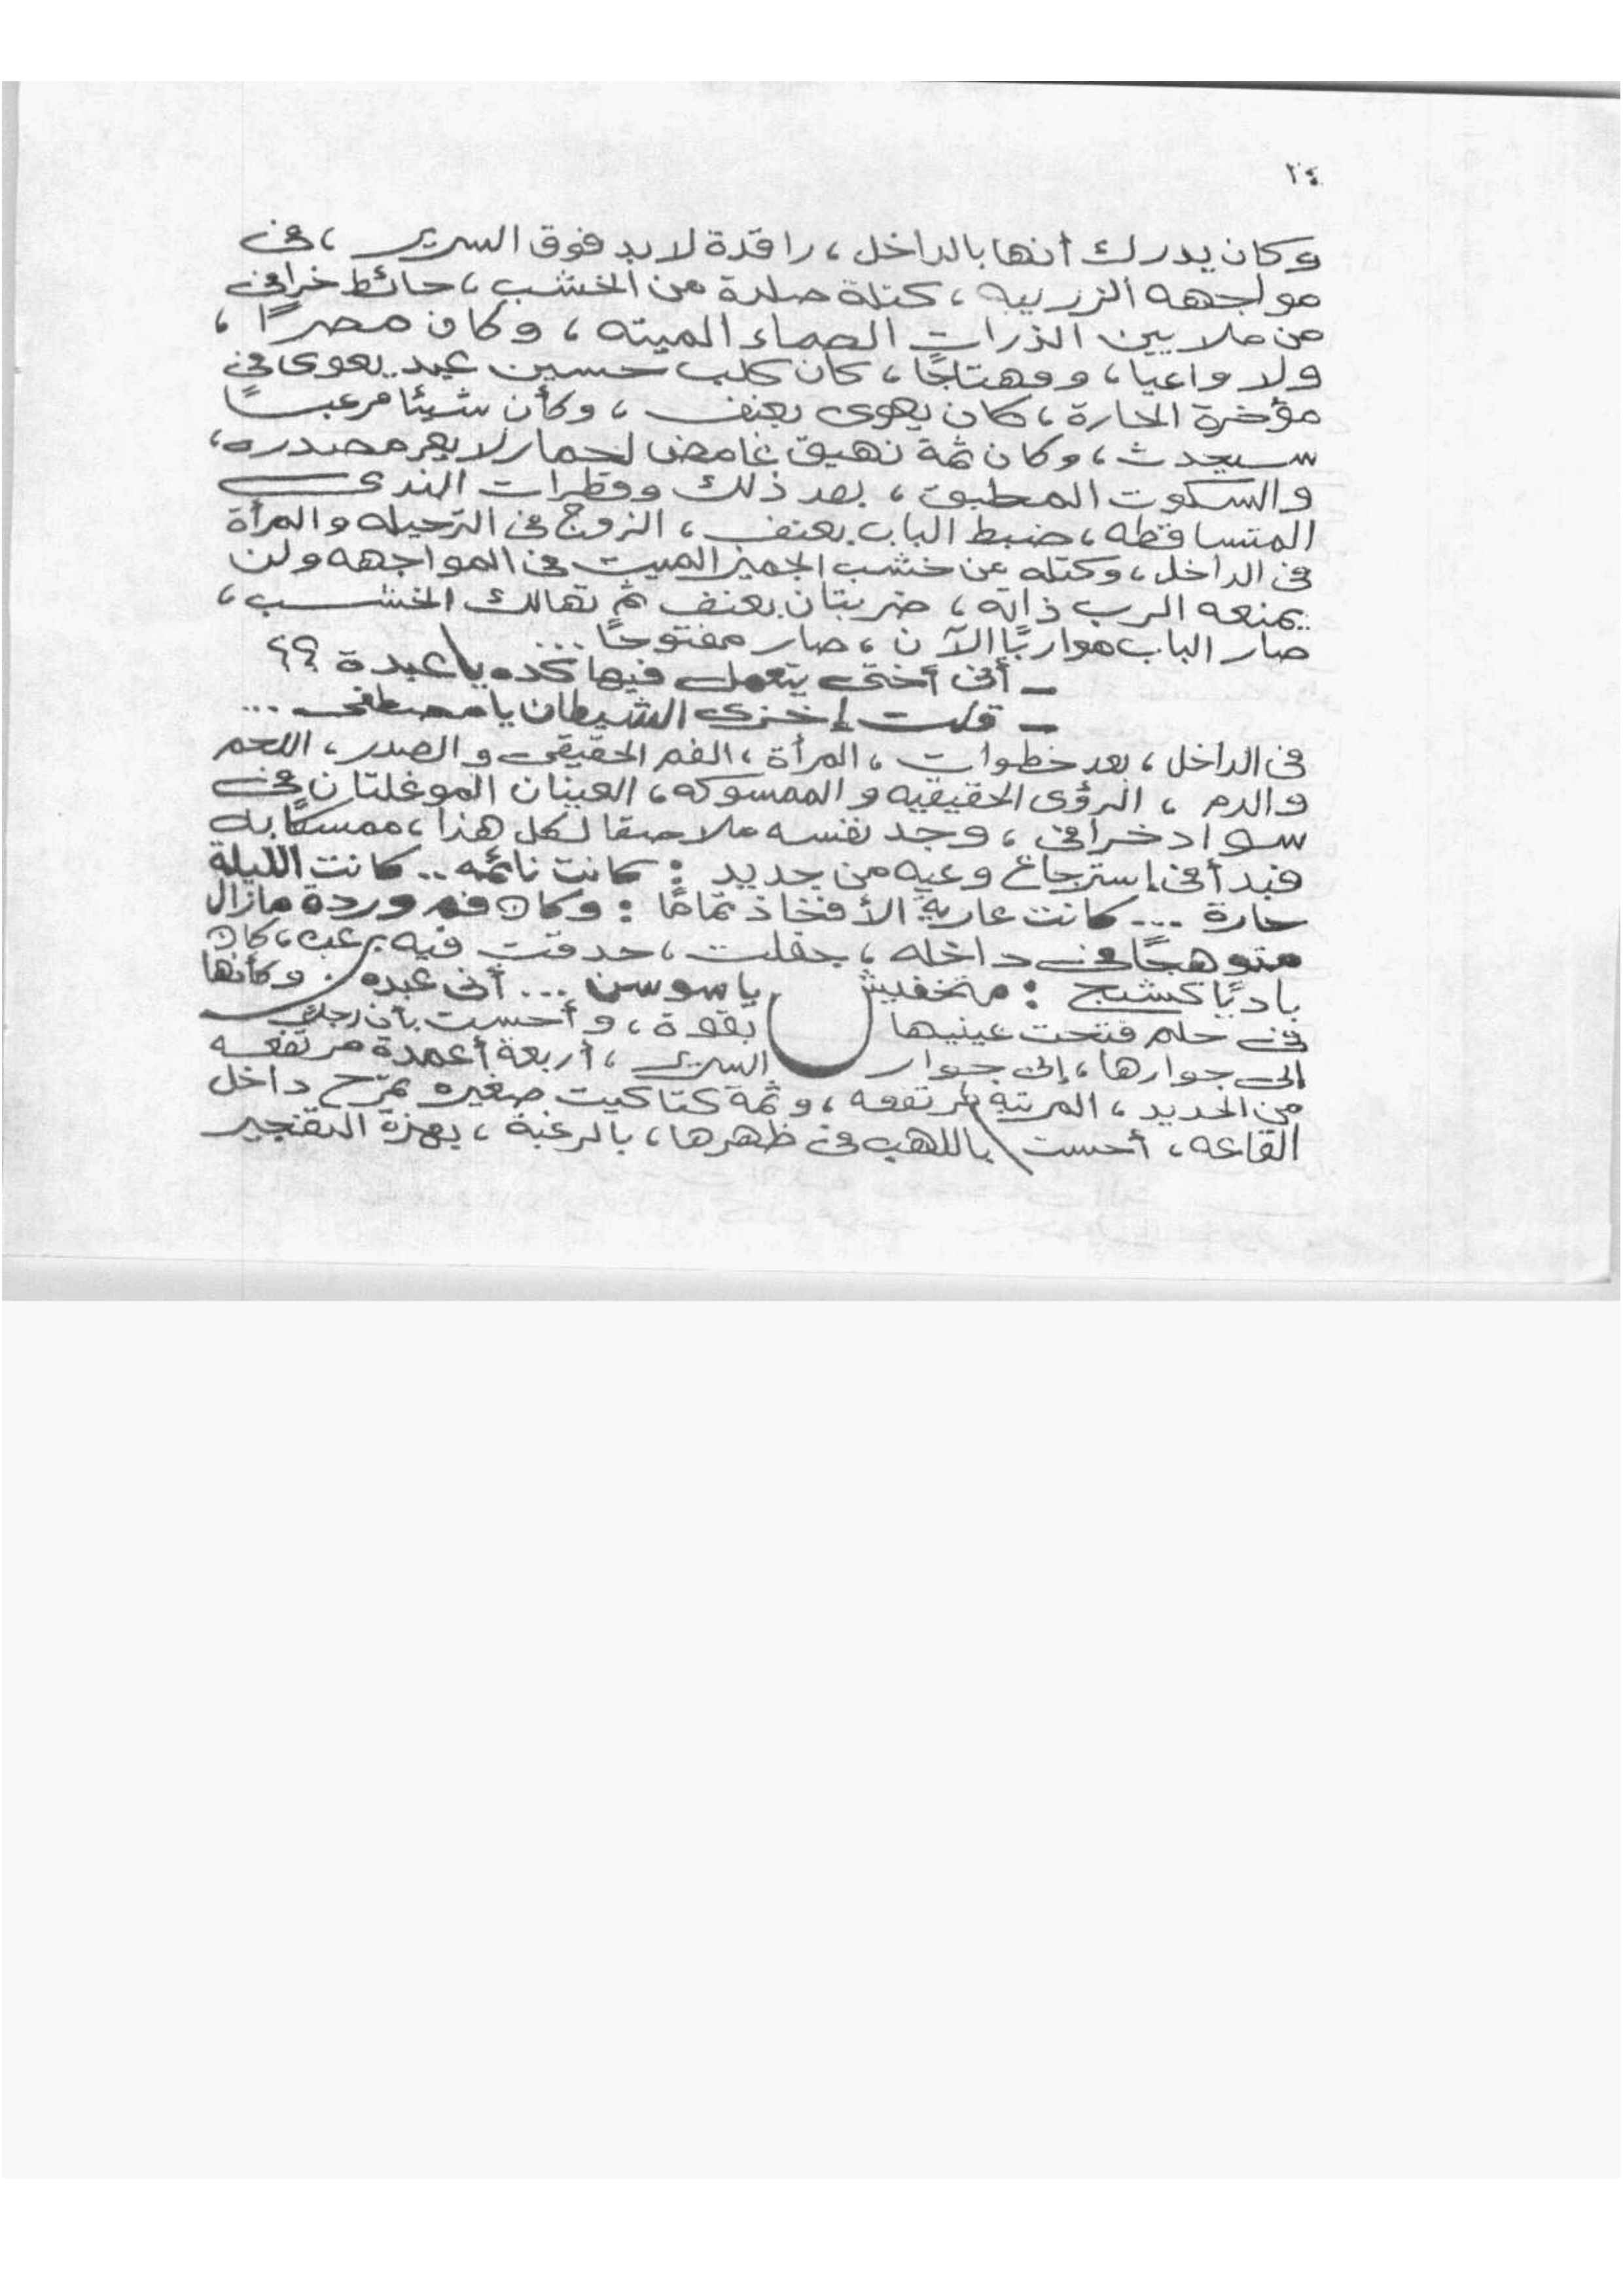 ٢٤
وكان يدرك أنها بالداخل، راقدة لابد فوق السرير، فى
مواجهه الزريبه، كتلة صلدة من الخشب، حائط خرافى
من ملايين الذرات الصماء الميته، وكان مصرًا،
ولا واعيا، ومهتاجًا، كان كلب حسين عيد يعوى فى
مؤخرة الحارة، كان يعوى بعنف، وكأن شيئا مرعبًا
سيحدث، وكان ثمة نهيق غامض لحمار لا يعر مصدره،
والسكوت المطبق، بعد ذلك وقطرات الندى
المتساقطه، ضبط الباب بعنف، الزوج فى الترحيله والمرأة
فى الداخل، وكتله من خشب الجميز الميت فى المواجهه ولن
يمنعه الرب ذاته، ضربتان بعنف ثم تهالك الخشب،
صار الباب مواربًا الآن، صار مفتوحًا...
– أنى أختى يتعمل فيها كده يا عبدة ؟؟
– قلت إخزى الشيطان يا مصطفى ...
فى الداخل، بعد خطوات، المرأة، الفم الحقيقى والصدر، اللحم
والدم، الرؤى الحقيقيه والممسوكه، العينان الموغلتان فى
سواد خرافى، وجد نفسه ملاصقا لكل هذا، ممسكًا به
فبدأ فى إسترجاع وعيه من جديد : كانت نائمه .. كانت الليلة
حارة ... كانت عارية الأفخاذ تمامًا : وكان فم وردة مازال
متوهجًا فى داخله، جفلت، حدقت فيه برعب، كان
باديًا كشبح : متخفيش يا سوسن ... أنى عبده. وكأنها
فى حلم فتحت عينيها بقوة، وأحست بأن رجلا
إلى جوارها، إلى جوار السرير، أربعة أعمدة مرتفعه
من الحديد، المرتبه مرتفعه، وثمة كتاكيت صغيره تمرح داخل
القاعه، أحست باللهب فى ظهرها، بالرغبة، بهزة التفجير